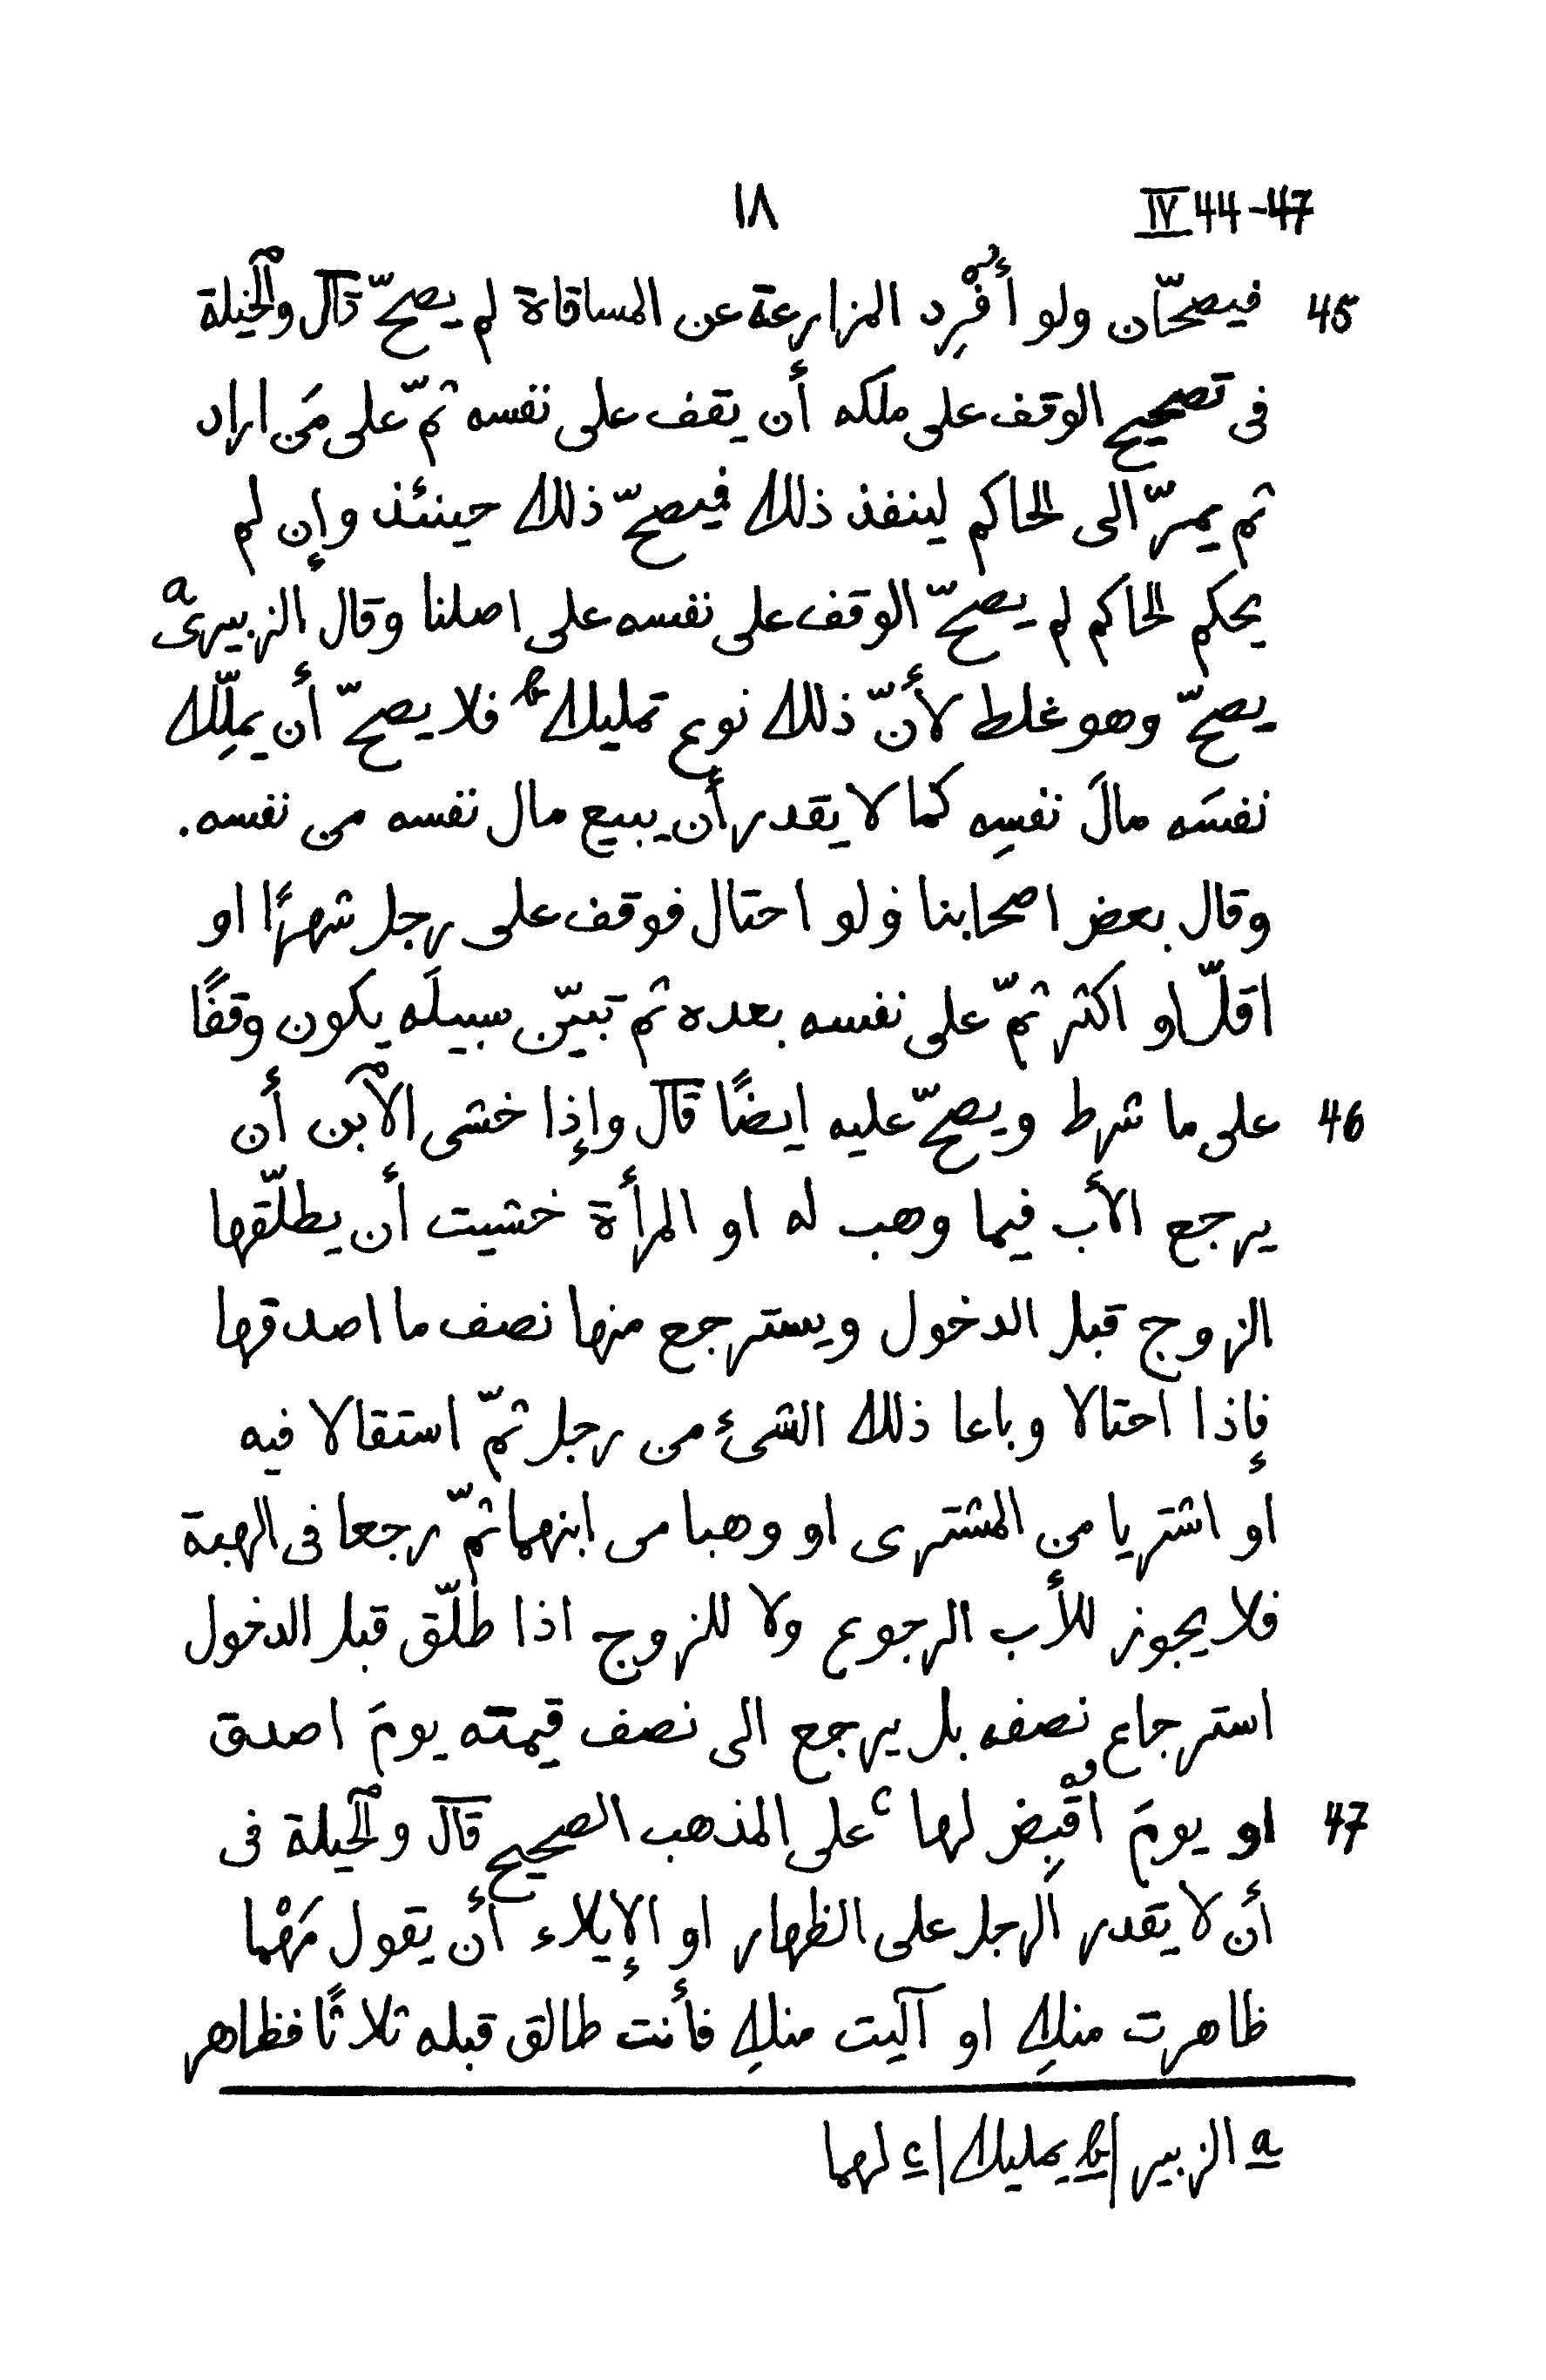 IV 44-47 ١٨
45 فيصحّان ولو أُفْرِد المزارعة عن المساقاة لم يصحّ قال والحيلة
فى تصحيح الوقف على ملكه أن يقف على نفسه ثمّ على مَن اراد
ثم يمرّ الى الحاكم لينفذ ذلك فيصحّ ذلك حينئذ وإن لم
يحكم الحاكم لم يصحّ الوقف على نفسه على اصلنا وقال الزبيرىّ a
يصحّ وهو غلط لأنّ ذلك نوع تمليك b فلا يصحّ أن يملِّك
نفسَه مالَ نفسِه كما لا يقدر أن يبيع مال نفسه من نفسه.
وقال بعض اصحابنا ولو احتال فوقف على رجل شهرًا او
اقلّ او اكثر ثمّ على نفسه بعده ثم تبيّن سبيلَه يكون وقفًا
46 على ما شرط ويصحّ عليه ايضًا قال وإذا خشى الآبن أن
يرجع الأب فيما وهب له او المرأة خشيت أن يطلّقها
الزوج قبل الدخول ويسترجع منها نصف ما اصدقها
فإذا احتالا وباعا ذلك الشىء من رجل ثمّ استقالا فيه
او اشتريا من المشترى او وهبا من ابنهما ثمّ رجعا فى الهبة
فلا يجوز للأب الرجوع ولا للزوج اذا طلّق قبل الدخول
استرجاع نصفه بل يرجع الى نصف قيمته يومَ اصدق
47 او يومَ اُقْبِض لها c على المذهب الصحيح قال والحيلة فى
أن لا يقدر الرجل على الظهار او الإيلاء أن يقول مَهْما
ظاهرت منكِ او آليت منكِ فأنت طالق قبله ثلاثًا فظاهر
a الزبير | b يمليك | c لهما